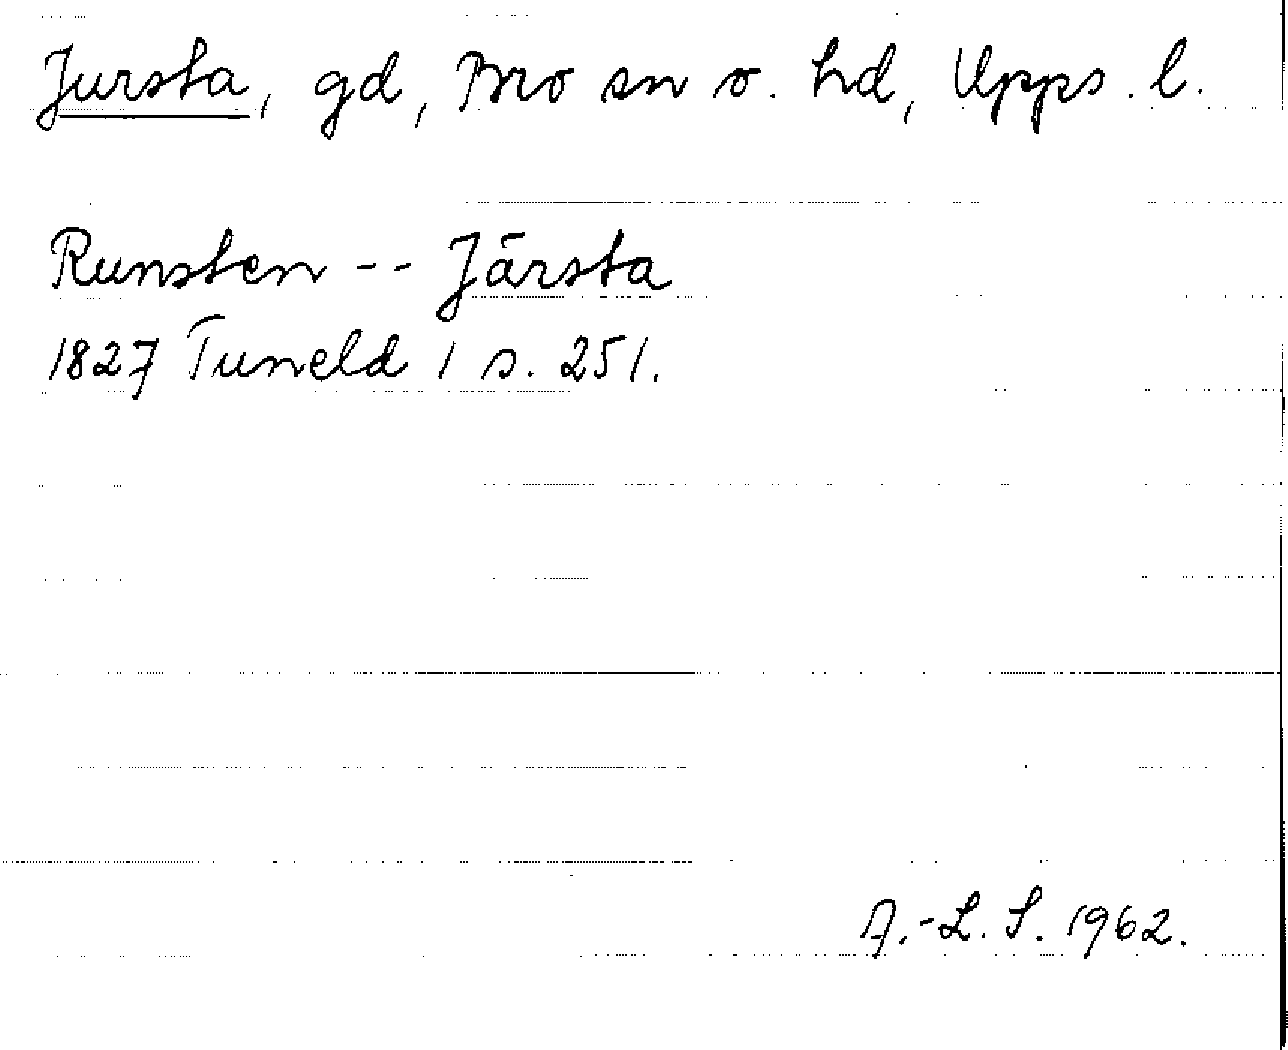 Jursta, gd, Bro sn o. hd, Upps. l.
Runsten -- Järsta
1827 Tuneld 1 s. 251.
A.-L. S. 1962.